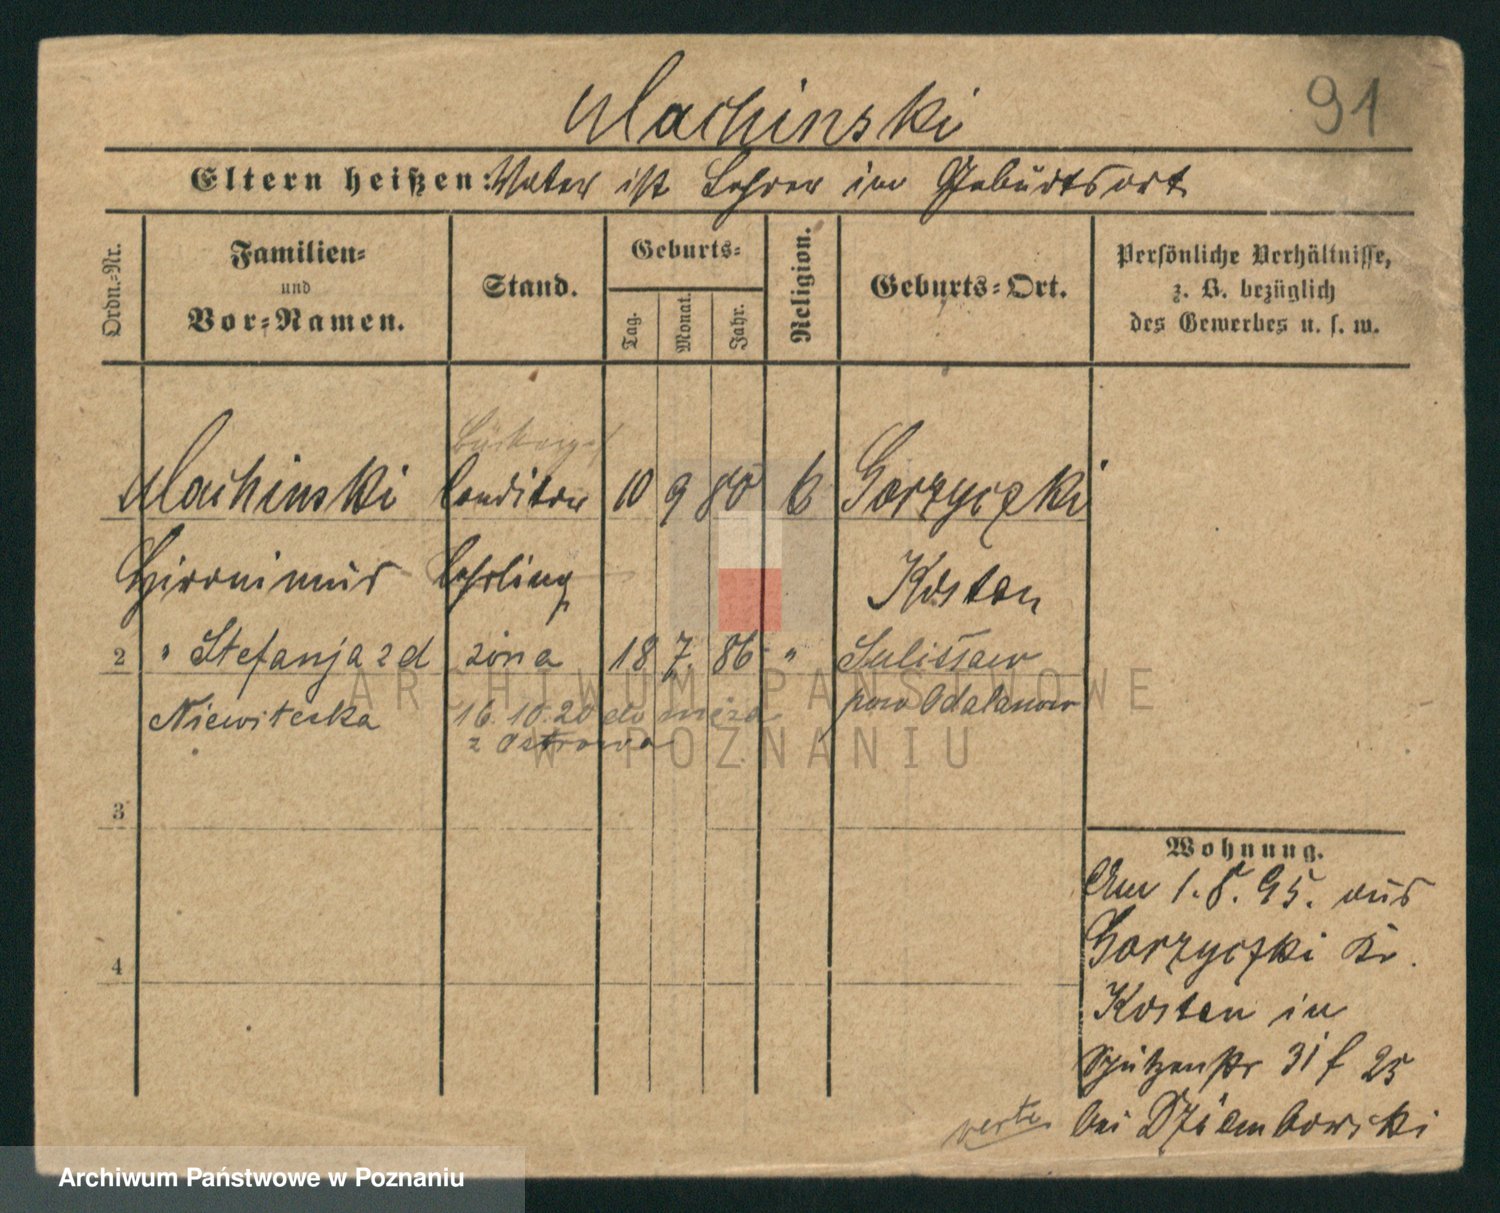 Machinski
91
Eltern heißen: Vater ist Lehrer im Geburtsort
Ordn.-Nr.
Familien-
und
Vor-Namen.
Stand.
Geburts-
Tag.
Monat.
Jahr.
Religion.
Geburts-Ort.
Persönliche Verhältnisse,
z. B. bezüglich
des Gewerbes u. s. w.
Machinski Conditor 10 9 80 Gorzyczki
Hieronimus Lehrling Kosten
2 " Stefanja zd żona 18 7. 86 " Sulisław
Niewitecka 16.10.20 do męża pow Odalanow
z Ostrowa
3
4
Wohnung.
Am 1. 8. 95. aus
Gorzyczki Kr.
Kosten in
Schützenstr 31 f 25
bei Dziembowski
verte
ARCHIWUM PAŃSTWOWE
W POZNANIU
Archiwum Państwowe w Poznaniu